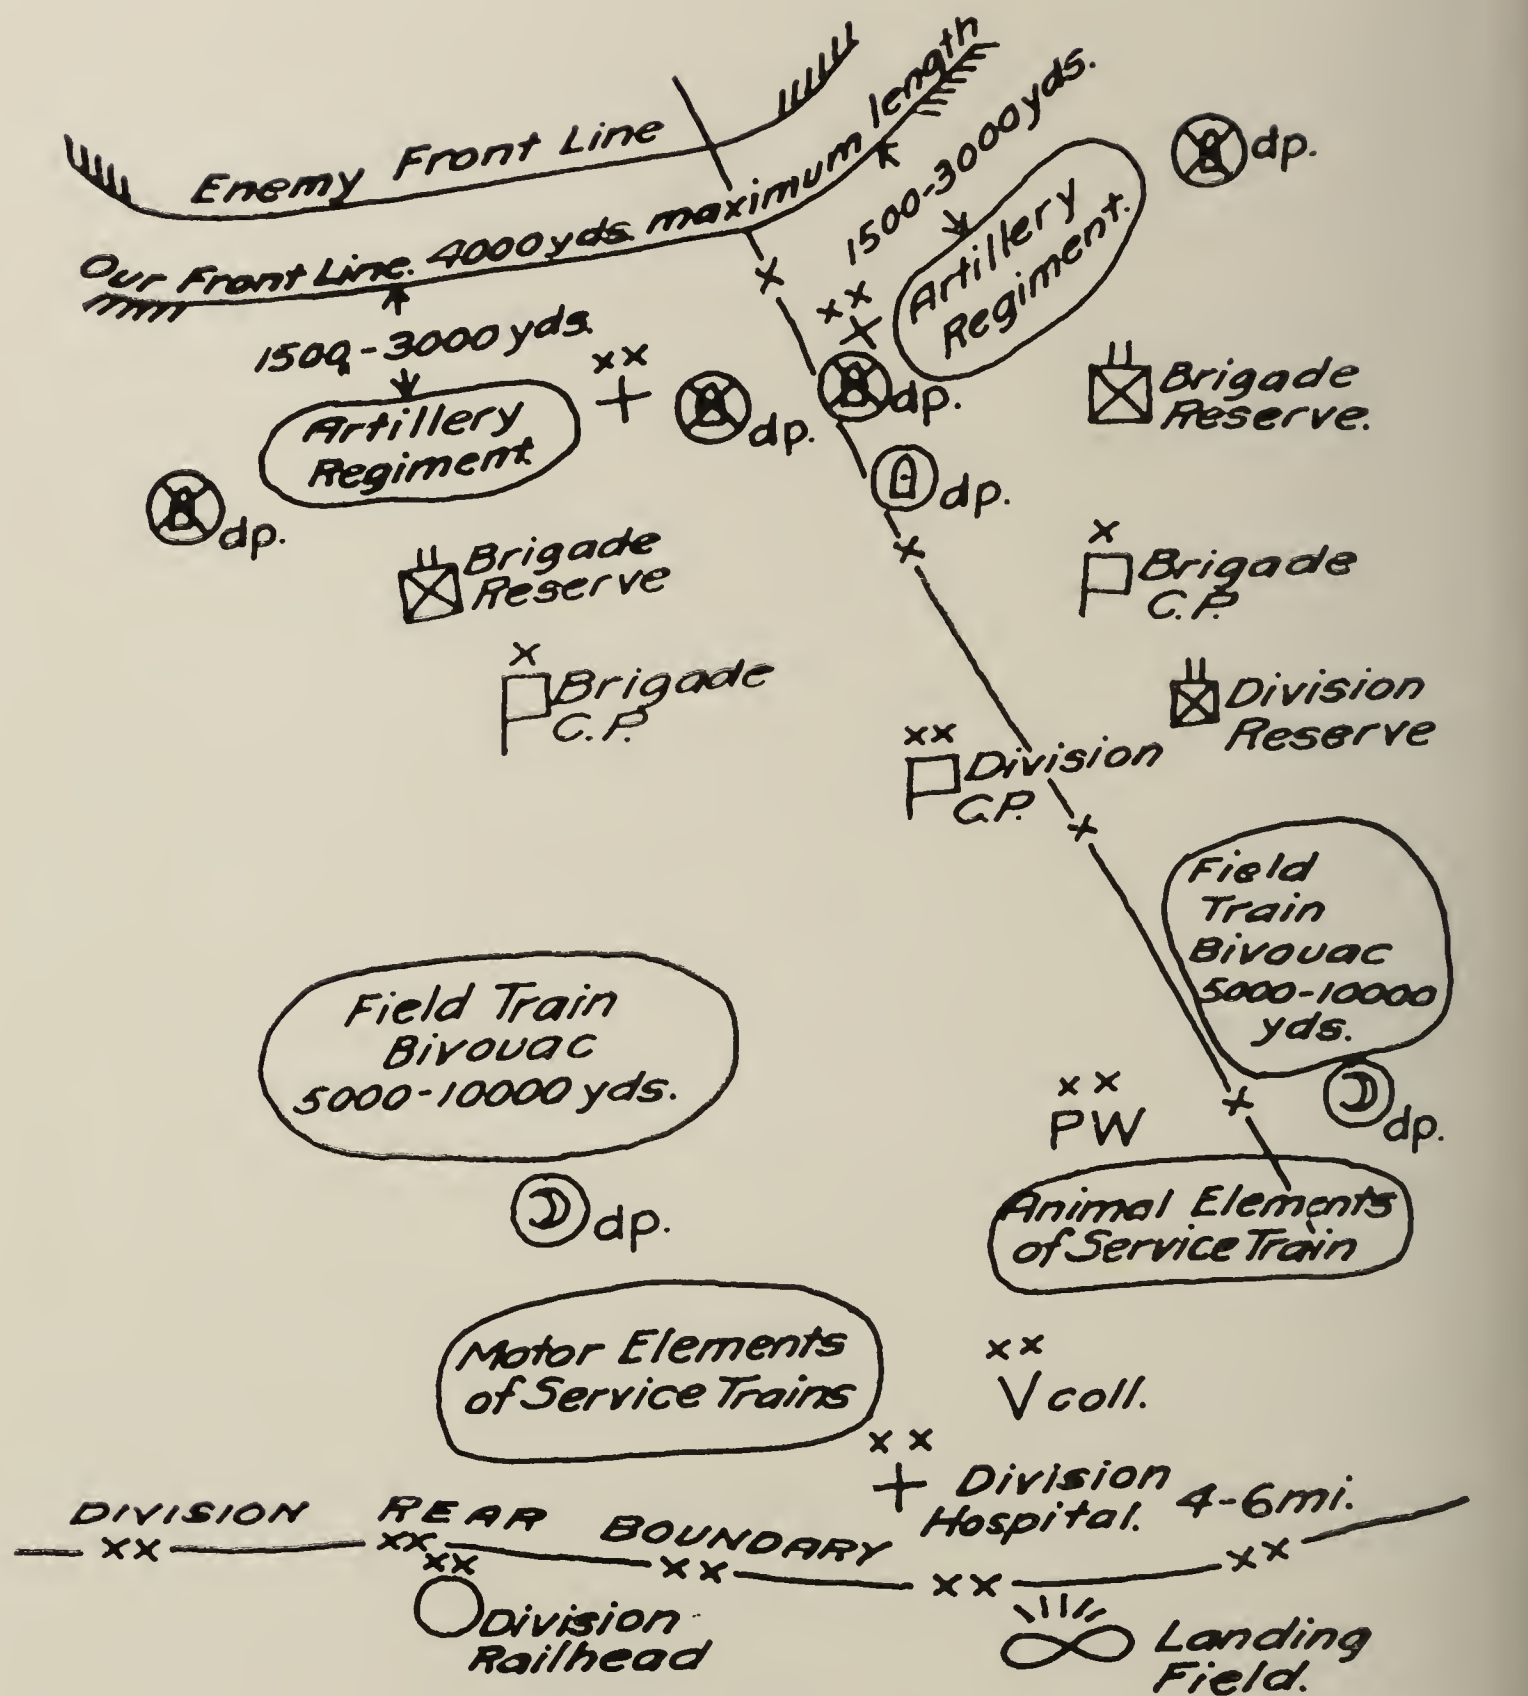 Enemy Front Line
Our Front Line. 4000 yds. maximum length
1500-3000 yds.
dp.
Artillery
Regiment.
xx
x
dp.
1500-3000 yds.
xx
dp.
Artillery
Regiment
dp.
Brigade
Reserve.
dp.
x
Brigade
Reserve
x
Brigade
C.P.
x
Brigade
C.P.
Division
Reserve
xx
Division
C.P.
x
Field
Train
Bivouac
5000-10000
yds.
Field Train
Bivouac
5000-10000 yds.
xx
PW
x
dp.
dp.
Animal Elements
of Service Train
Motor Elements
of Service Trains
xx
V coll.
xx
Division
Hospital. 4-6 mi.
DIVISION REAR BOUNDARY
xx xx xx xx xx
xx
Division
Railhead
Landing
Field.